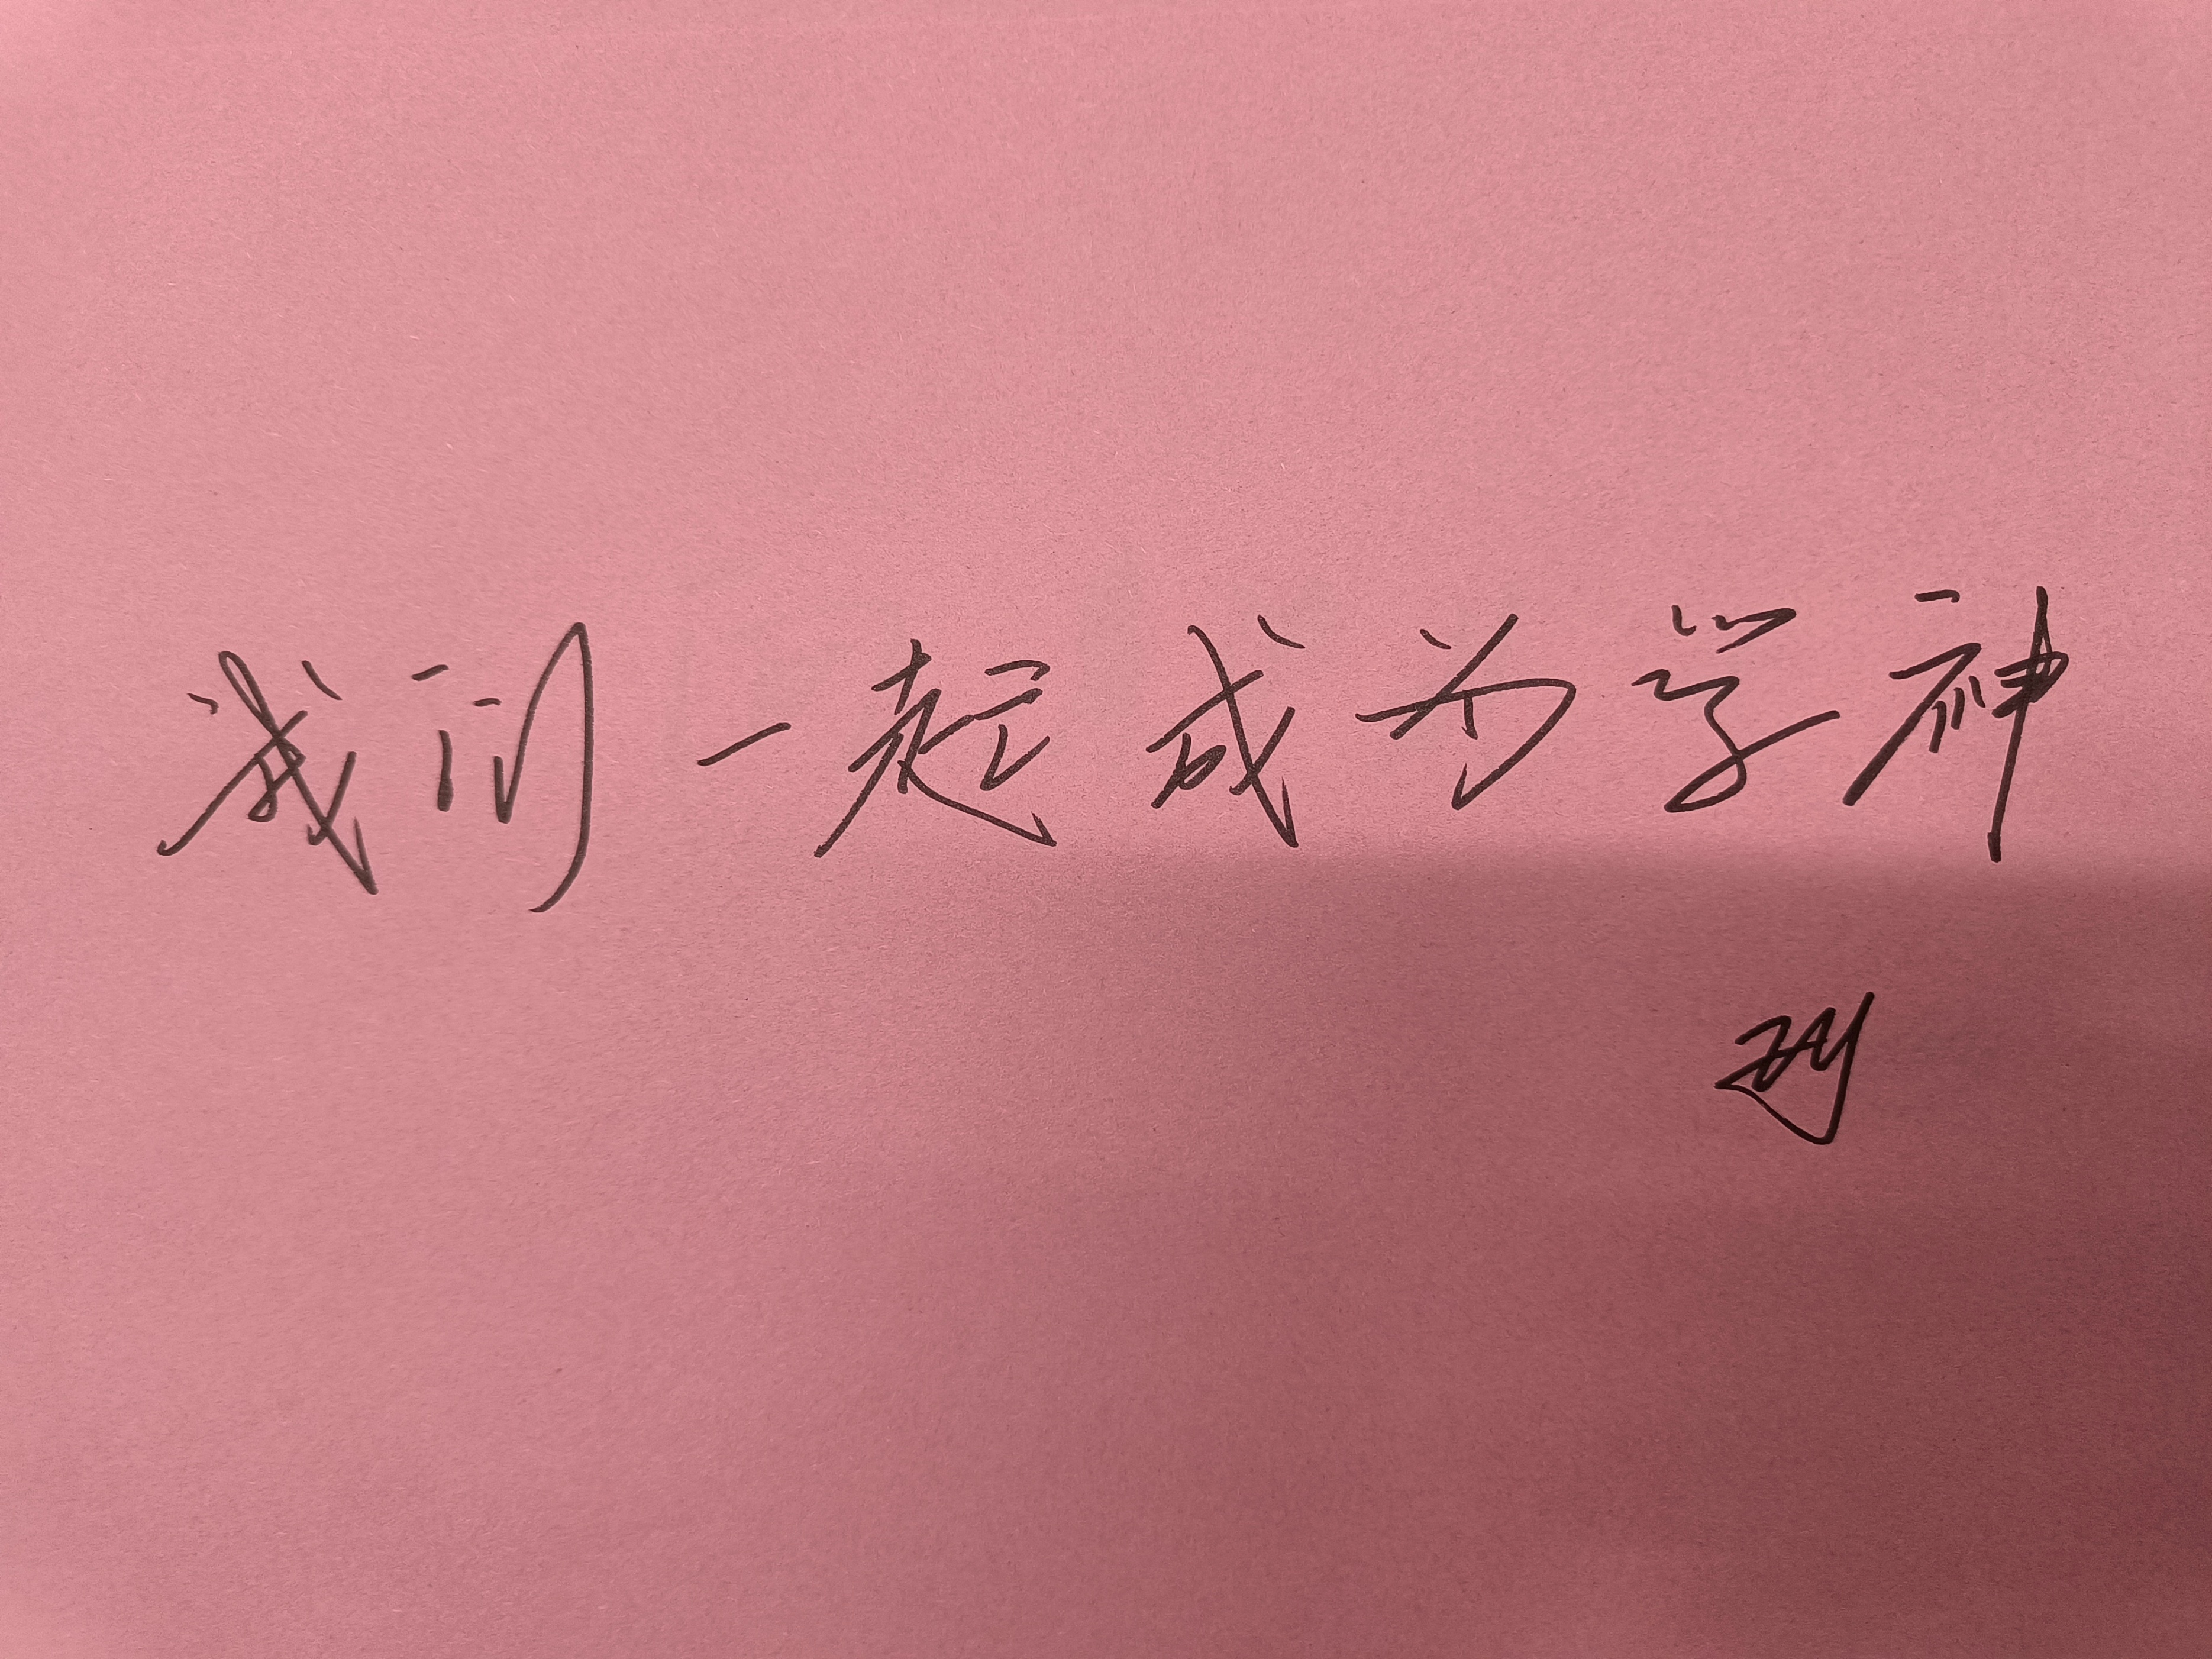 我们一起成为学神